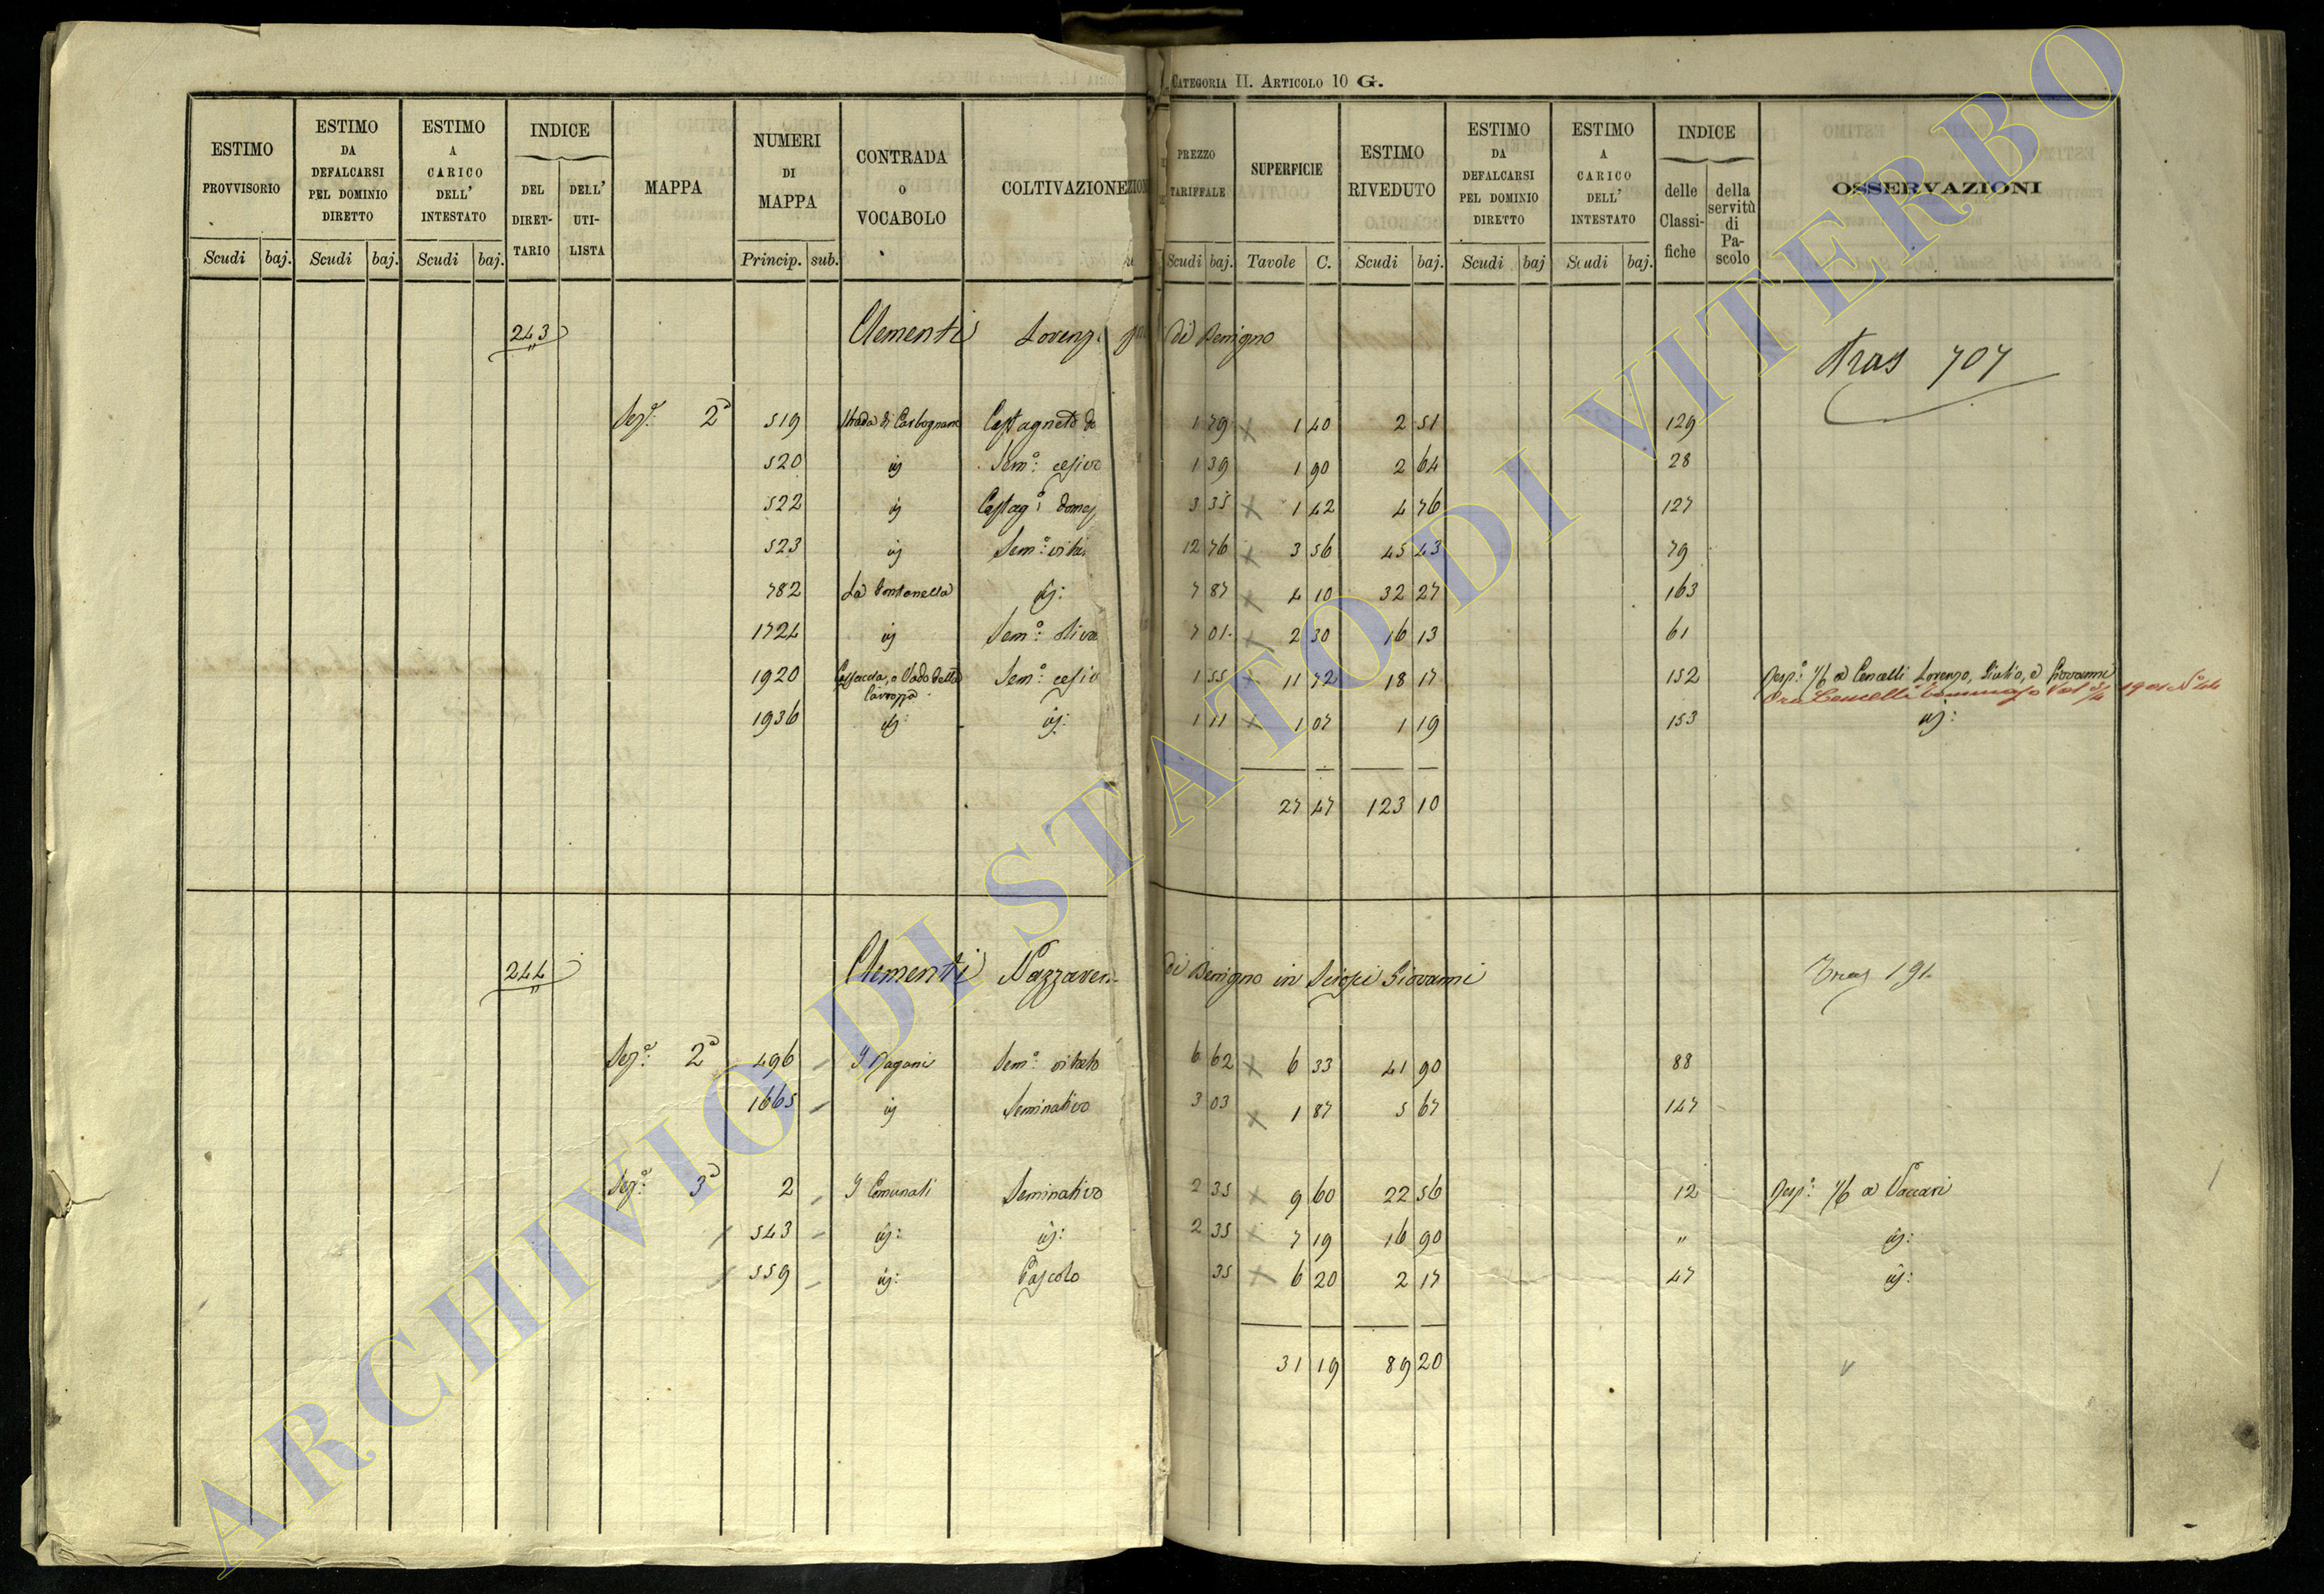 CATEGORIA II. ARTICOLO 10 G.
ESTIMO PROVVISORIO ESTIMO DA DEFALCARSI PEL DOMINIO DIRETTO ESTIMO A CARICO DELL' INTESTATO INDICE DEL DIRETTARIO DELL' UTILISTA MAPPA NUMERI DI MAPPA CONTRADA O VOCABOLO COLTIVAZIONE PREZZO TARIFFALE SUPERFICIE ESTIMO RIVEDUTO ESTIMO DA DEFALCARSI PEL DOMINIO DIRETTO ESTIMO A CARICO DELL' INTESTATO INDICE delle Classifiche della servitù di Pascolo OSSERVAZIONI
Scudi baj. Scudi baj. Scudi baj. Princip. sub. Scudi baj. Tavole C. Scudi baj. Scudi baj Scudi baj.
243 Clementi Lorenz di Benigno
Tras 707
Sez.e 2a 519 Strada di Carbognano Castagneto do 1 79 x 1 40 2 51 129
520 id Sem.o cesivo 1 39 1 90 2 64 28
522 id Castag.o domes 3 35 x 1 42 4 76 127
523 id Sem.o vitat 12 76 x 3 56 45 43 79
782 La Fontanella id: 7 87 x 4 10 32 27 163
1724 id Sem.o oliva 7 01 x 2 30 16 13 61
1920 o Vado della Sem.o cesiv 1 55 x 11 72 18 17 152 Resp.o 1/6 a Cencelli Lorenzo, Giulio, e Giovanni
Ora Cencelli Tommaso 1901 No 44
1936 id: id: 1 11 x 1 07 1 19 153 id:
27 47 123 10
244 Clementi Nazzaren di Benigno in Giovanni Tras 191
Sez.e 2a 496 I Pagani Sem.o vitato 6 62 x 6 33 41 90 88
1665 id Seminativo 3 03 x 1 87 5 67 147
Sez.e 3a 2 I Comunali Seminativo 2 35 x 9 60 22 56 12 Resp.o 1/6 a Vaccari
543 id: id: 2 35 x 7 19 16 90 " id:
559 id: Pascolo 35 x 6 20 2 17 47 id:
31 19 89 20
ARCHIVIO DI STATO DI VITERBO